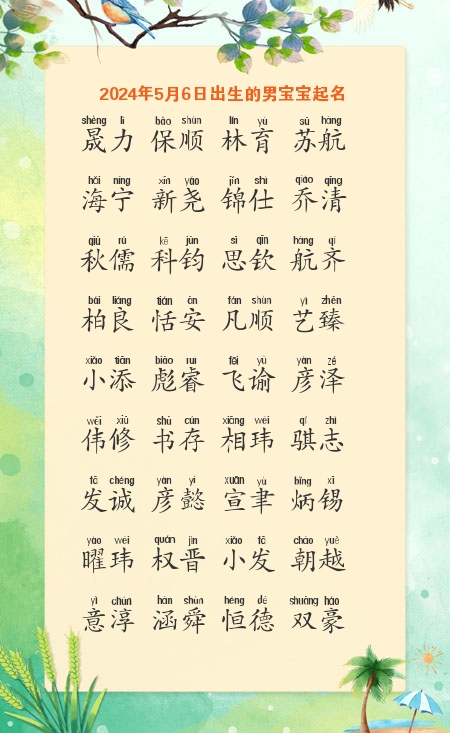 2024年5月6日出生的男宝宝起名
shèng lì bǎo shùn lín yù sū háng
晟力 保顺 林育 苏航
hǎi níng xīn yáo jǐn shì qiáo qīng
海宁 新尧 锦仕 乔清
qiū rú kē jūn sī qīn háng qí
秋儒 科钧 思钦 航齐
bǎi liáng tián ān fán shùn yì zhēn
柏良 恬安 凡顺 艺臻
xiǎo tiān biāo ruì fēi yù yàn zé
小添 彪睿 飞谕 彦泽
wěi xiū shū cún xiāng wěi qí zhì
伟修 书存 相玮 骐志
fā chéng yàn yì xuān yù bǐng xī
发诚 彦懿 宣聿 炳锡
yào wěi quán jìn xiǎo fā cháo yuè
曜玮 权晋 小发 朝越
yì chún hán shùn héng dé shuāng háo
意淳 涵舜 恒德 双豪